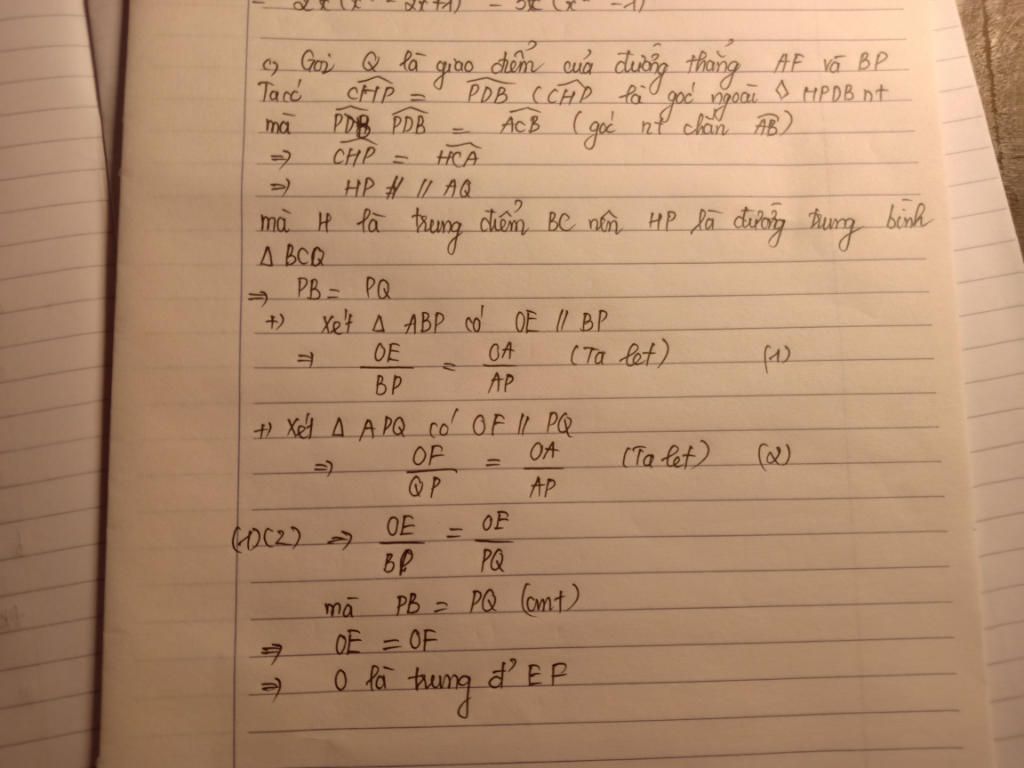 - 2x (x² - 2x+1) - 3x (x² -1)
c, Gọi Q là giao điểm của đường thẳng AF và BP
Ta có CHP = PDB (CHP là góc ngoài ◊ HPDB nt
mà PDB PDB = ACB (góc nt chắn AB)
=> CHP = HCA
=> HP // // AQ
mà H là trung điểm BC nên HP là đường trung bình
Δ BCQ
=> PB = PQ
+) Xét Δ ABP có OE // BP
=> OE/BP = OA/AP (Ta let) (1)
+) Xét Δ APQ có OF // PQ
=> OF/QP = OA/AP (Ta let) (2)
(1)(2) => OE/BP = OF/PQ
mà PB = PQ (cmt)
=> OE = OF
=> O là trung đ' EF